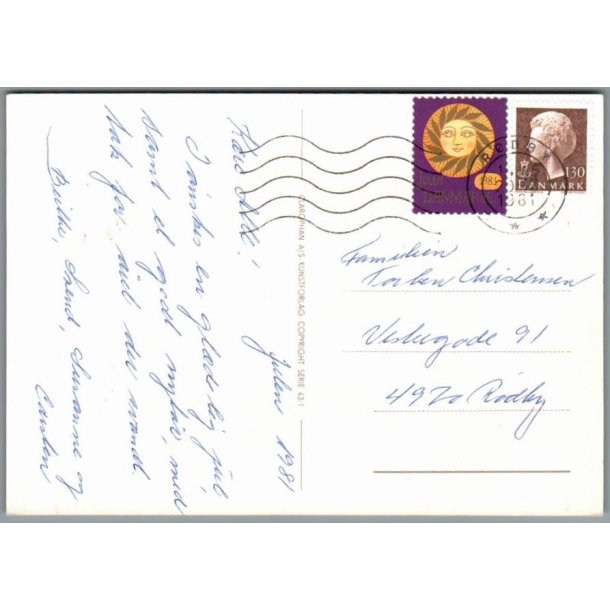 Julen 1981
Kære Alle!
I ønskes en glædelig jul
samt et godt nytår, med
tak for året der svandt.
Svend, Susanne og
Carsten
CLAROPHAN A/S KUNSTFORLAG COPYRIGHT SERIE 43/1
JULEN
1981
DANMARK
130
DANMARK
RØDBY
1981
Familien
Torben Christensen
Vestergade 91
4970 Rødby